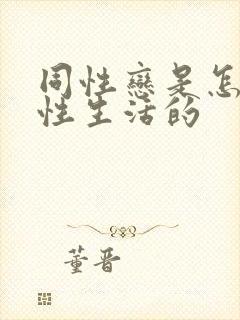 同性戀是怎
性生活的
董晋